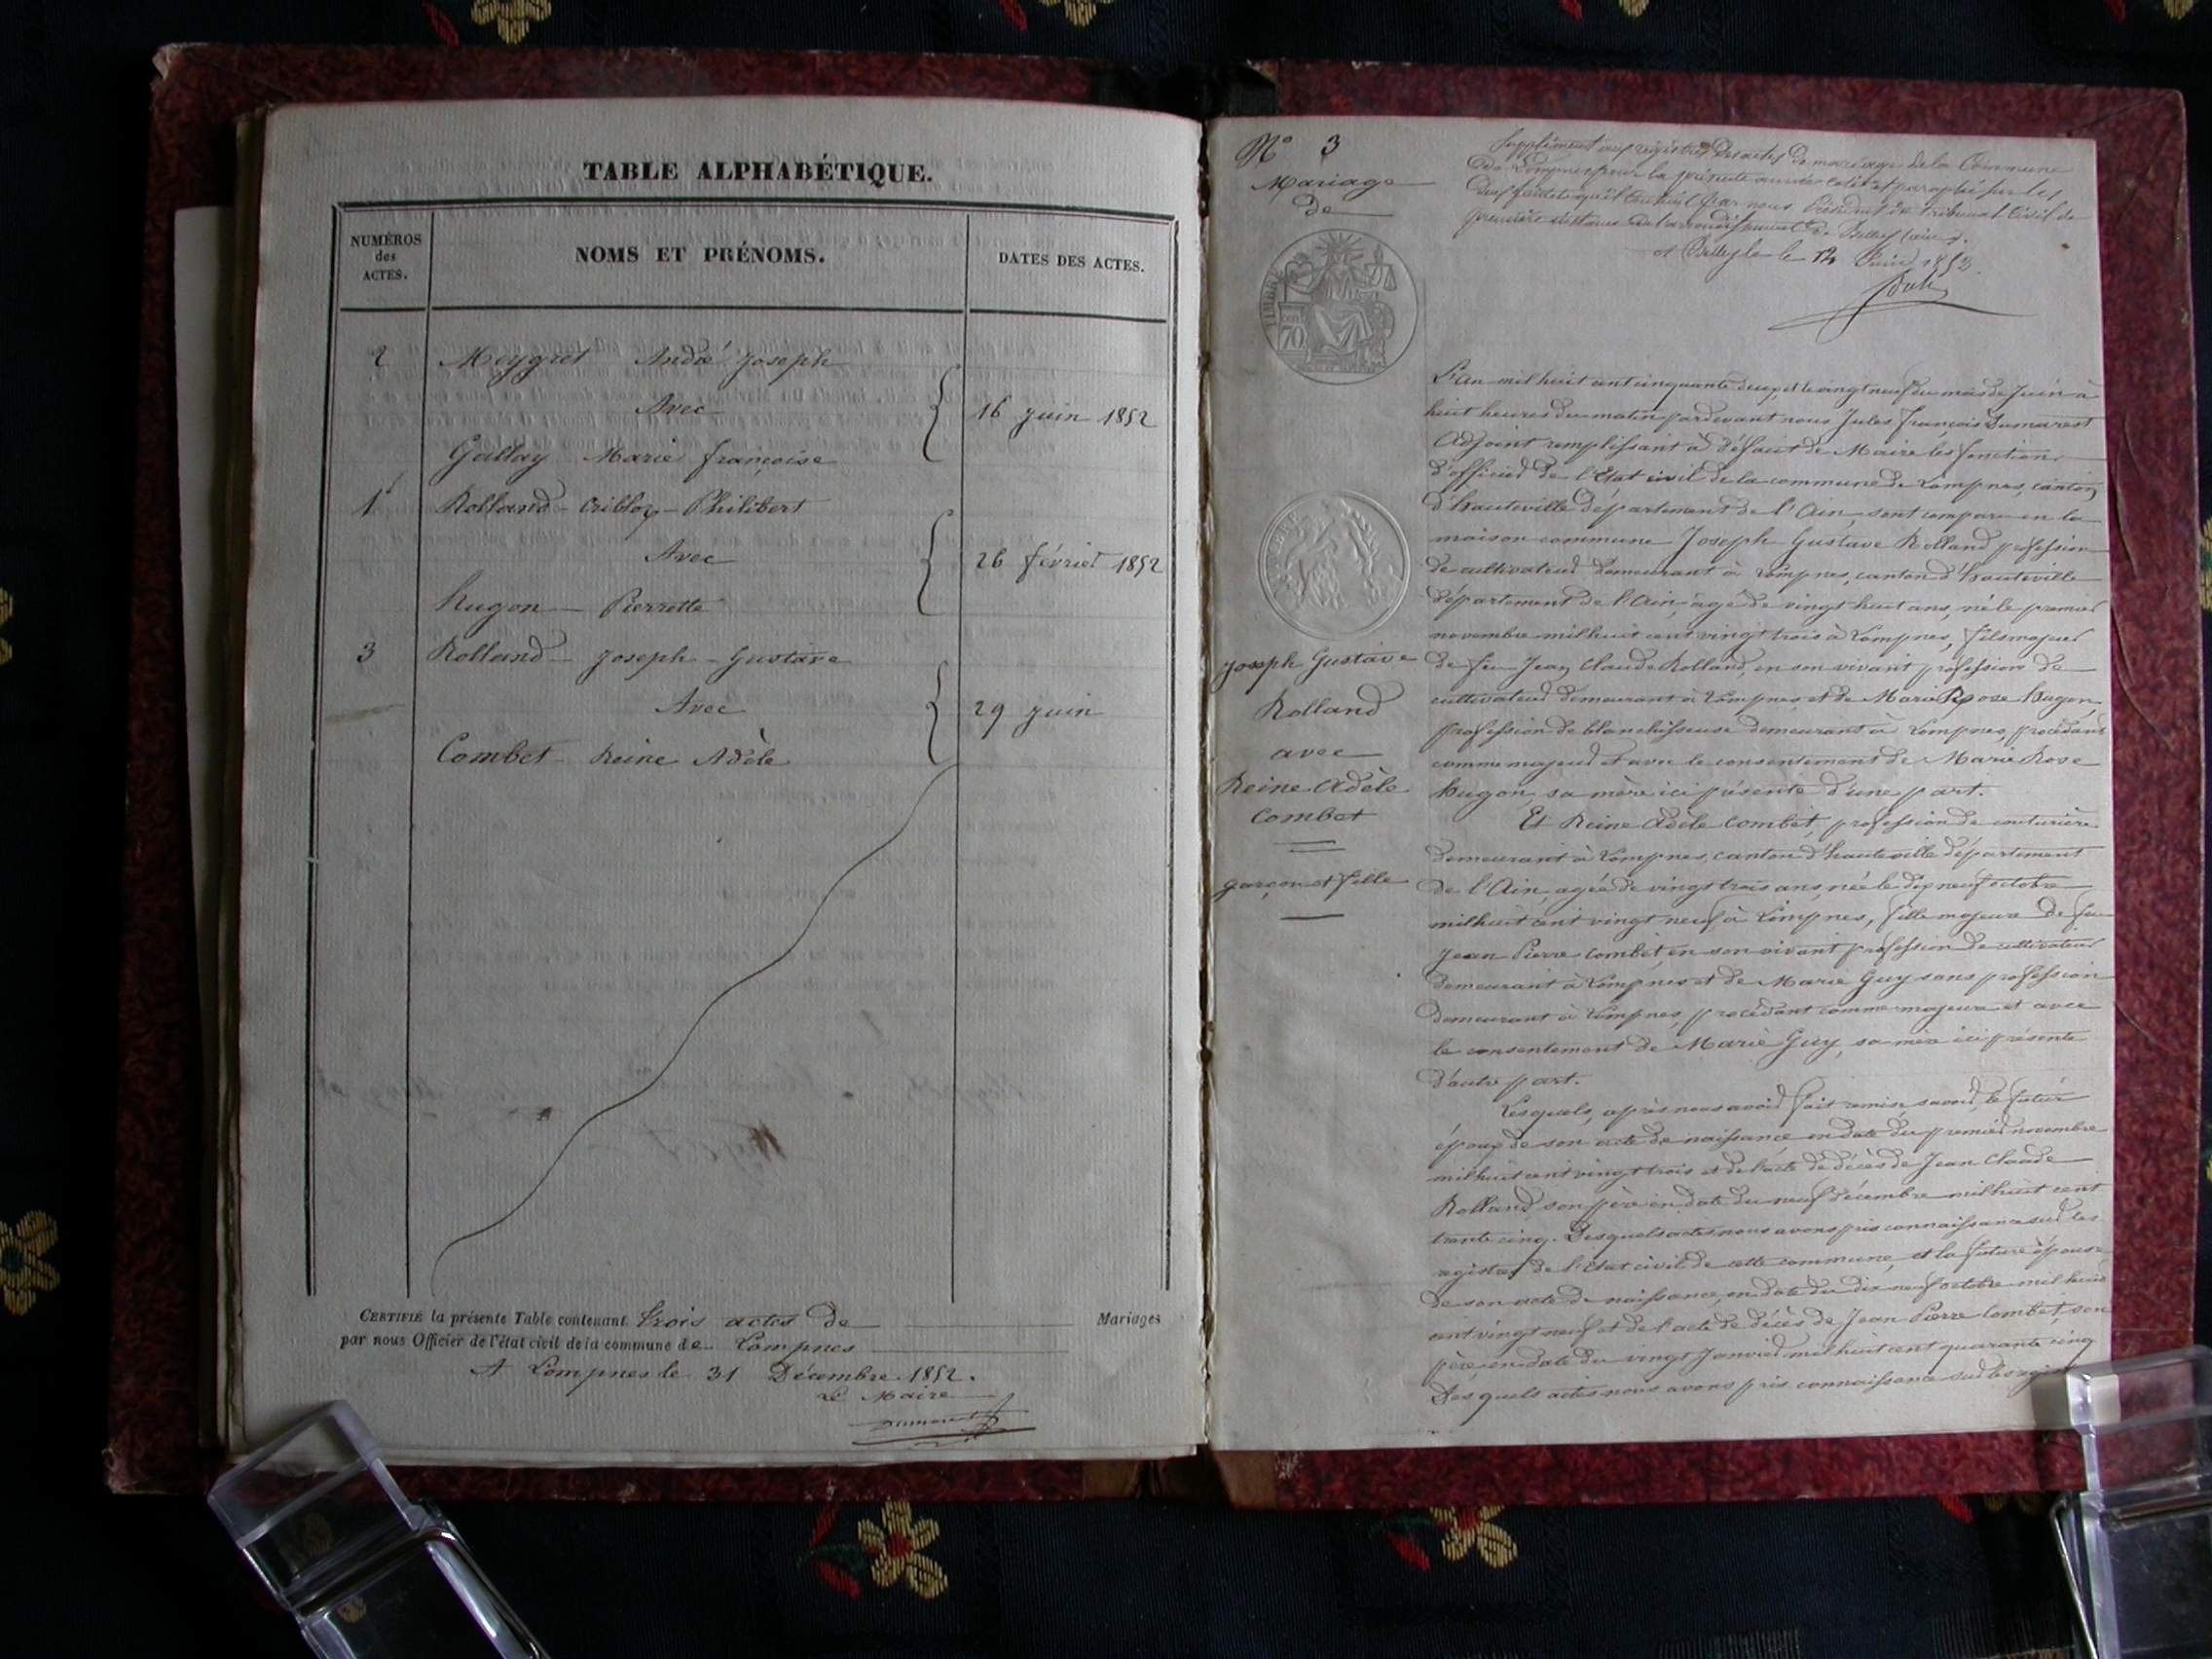 TABLE ALPHABÉTIQUE.
NUMÉROS
des
ACTES.
NOMS ET PRÉNOMS.
DATES DES ACTES.
2 Meygret André Joseph
Avec
16 juin 1852
Gallay Marie françoise
1 Rolland - Cribloz - Philibert
Avec
26 février 1852
hugon - Pierrette
3 Rolland - Joseph - Gustave
Avec
29 juin
Combet Reine Adèle
CERTIFIÉ la présente Table contenant trois actes de Mariages
par nous Officier de l'état civil de la commune de Lompnes
A Lompnes le 31 Décembre 1852.
Le Maire
N° 3
Mariage
de
Joseph Gustave
Rolland
avec
Reine Adèle
Combet
garçon et fille
TIMBRE
70
Supplément aux registres des actes de mariage de la Commune
de Lompnes pour la présente année coté et paraphé par les
deux feuillets qu'il contient par nous Président du tribunal Civil de
première instance de l'arrondissement de Belley
L'an mil huit cent cinquante deux, et le vingt neuf du mois de Juin à
huit heures du matin pardevant nous Jules françois Dumarest
Adjoint remplissant à défaut de Maire les fonctions
d'officier de l'Etat civil de la commune de Lompnes, canton
d'hauteville département de l'Ain, sont comparu en la
maison commune Joseph Gustave Rolland profession
de cultivateur demeurant à Lompnes, canton d'hauteville
département de l'Ain, âgé de vingt huit ans, né le premier
novembre mil huit cent vingt trois à Lompnes, fils majeur
de feu Jean Claude Rolland, en son vivant profession de
cultivateur demeurant à Lompnes et de Marie Rose hugon,
profession de blanchisseuse demeurant à Lompnes, procédant
comme majeur et avec le consentement de Marie Rose
hugon sa mère ici présente d'une part.
Et Reine Adèle Combet, profession de couturière
demeurant à Lompnes, canton d'hauteville département
de l'Ain, agée de vingt trois ans, née le dix neuf octobre
mil huit cent vingt neuf à Lompnes, fille majeure de feu
Jean Pierre Combet, en son vivant profession de cultivateur
demeurant à Lompnes et de Marie Guy sans profession
demeurant à Lompnes, procédant comme majeure et avec
le consentement de Marie Guy, sa mère ici présente
d'autre part.
Lesquels, après nous avoir fait remise savoir, le futur
époux de son acte de naissance en date du premier novembre
mil huit cent vingt trois et de l'acte de décès de Jean Claude
Rolland son père en date du neuf décembre mil huit cent
trente cinq. Desquels actes nous avons pris connaissance sur les
registres de l'état civil de cette commune, et la future épouse
de son acte de naissance, en date du dix neuf octobre mil huit
cent vingt neuf et de l'acte de décès de Jean Pierre Combet, son
père en date du vingt Janvier mil huit cent quarante cinq
Desquels actes nous avons pris connaissance sur les